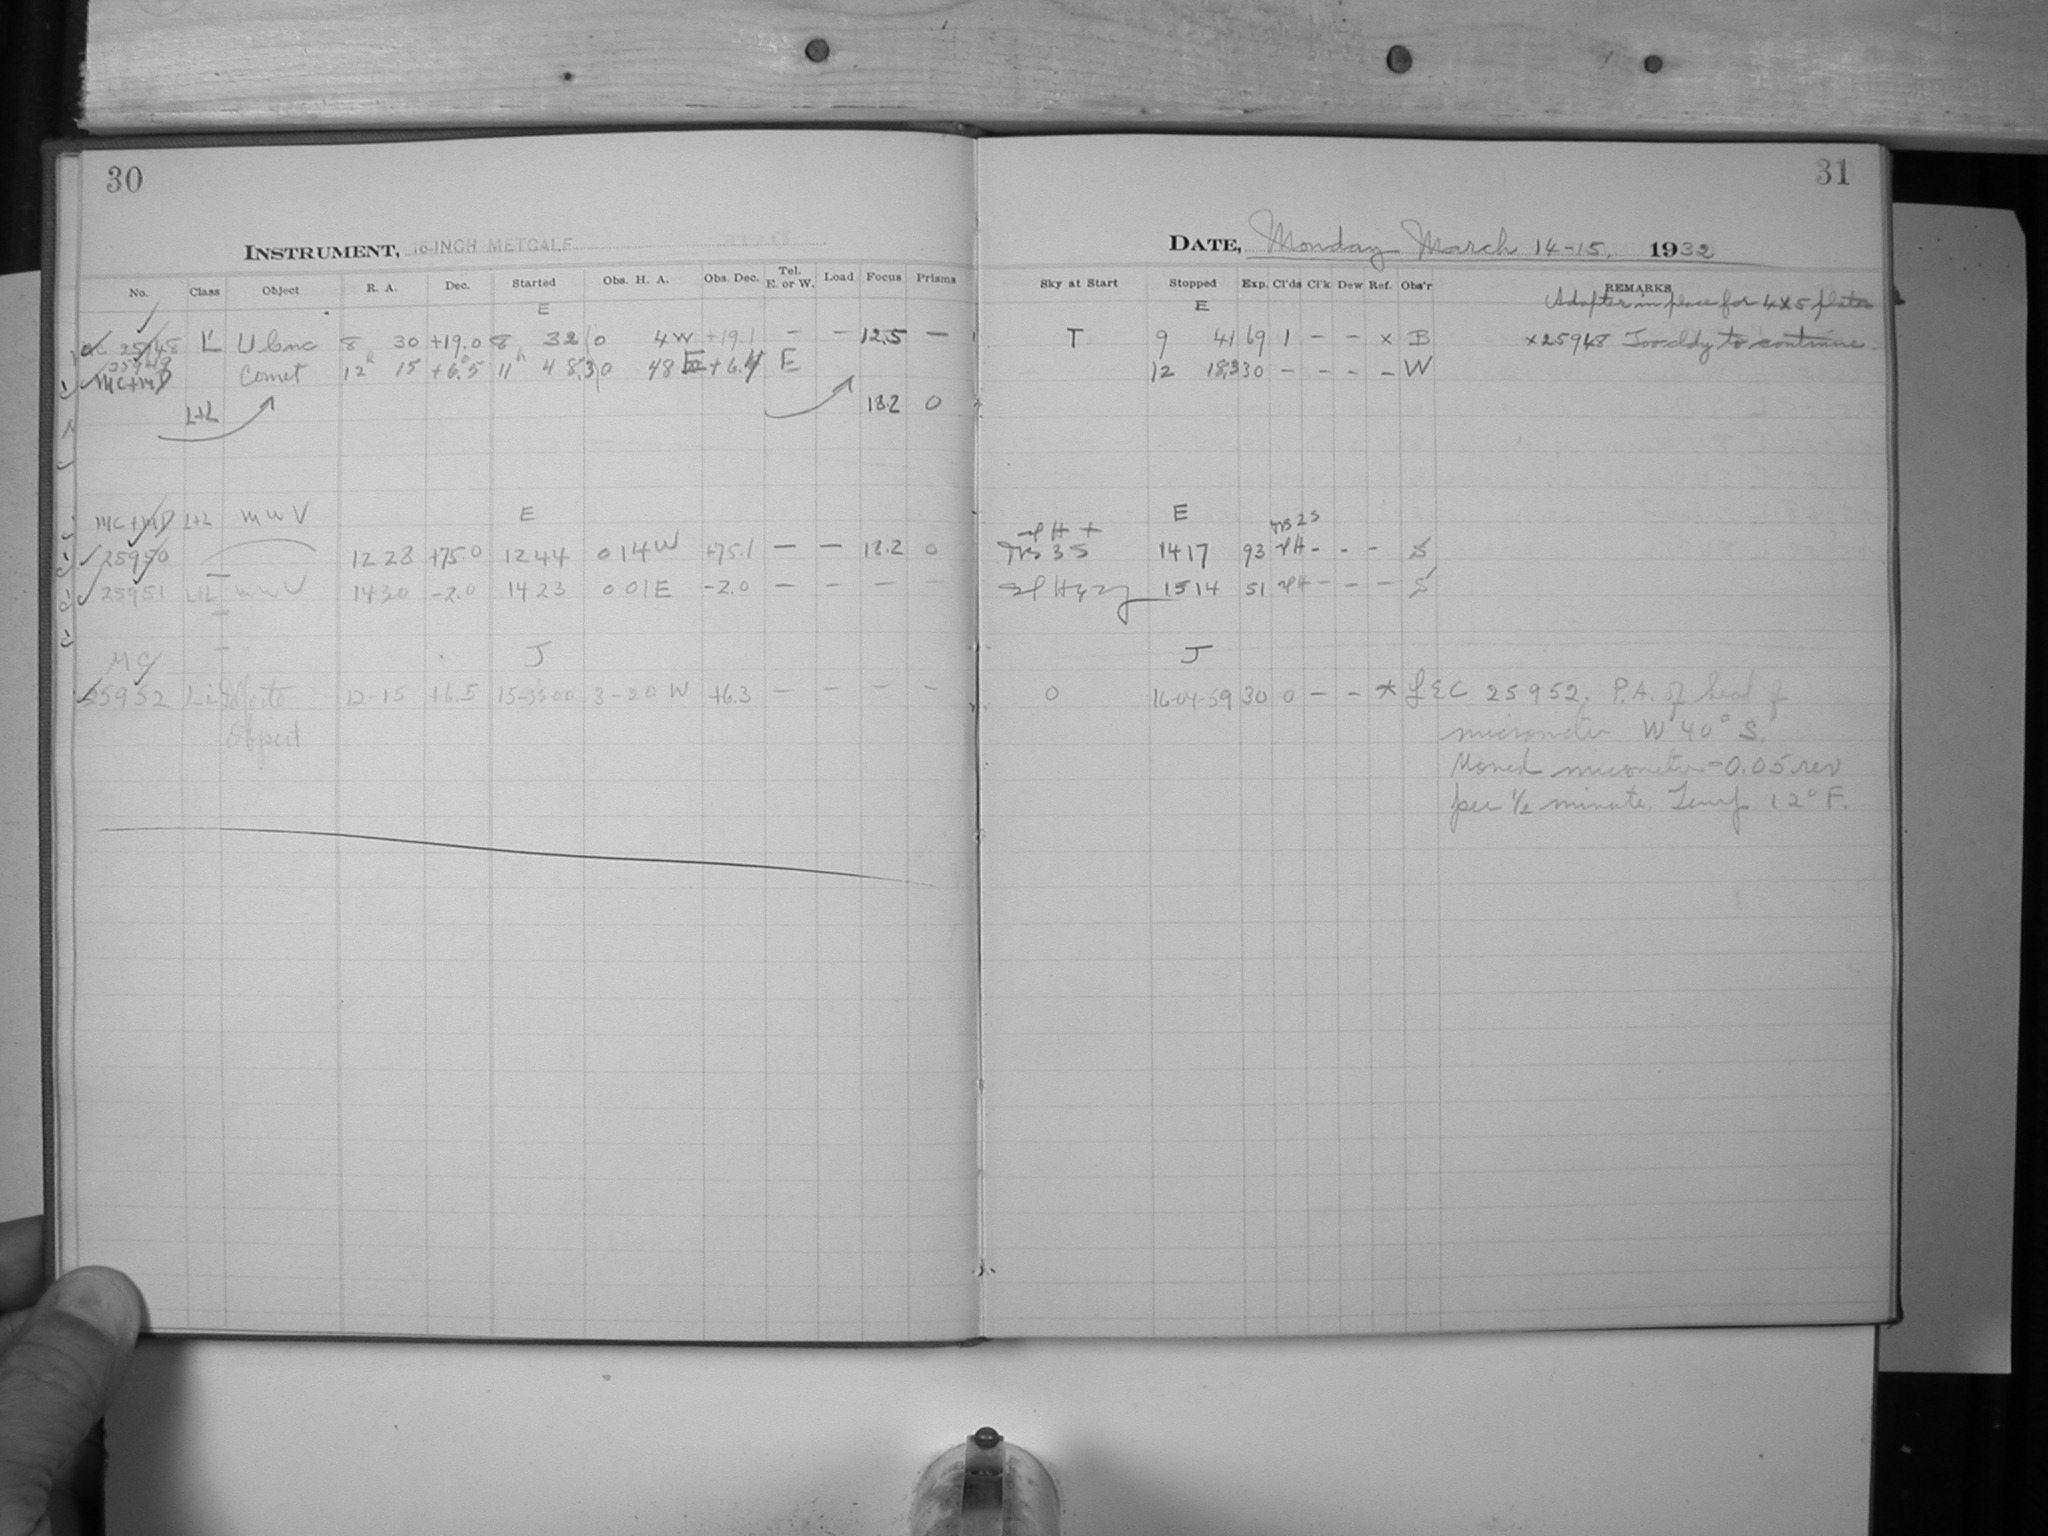 30
INSTRUMENT, 16-INCH METCALF
No. Class Object R. A. Dec. Started Obs. H. A. Obs. Dec. Tel. E. or W. Load Focus Prisms
E
25948 L' U Cnc 8 30 +19.0 8 32 0 4 W +19.1 – – 12.5 –
25949
MC+MD Comet 12h 15 +6.5 11h 48.3 0 48 E +6.4 E
L+L 18.2 0
MC+MD L+L MWV E
25950 12 28 +75.0 12 44 0 14 W +75.1 – – 18.2 0
25951 L+L MWV 14 30 –2.0 14 23 0 01 E –2.0 – – – –
MC J
25952 Object 12-15 +6.5 3-20 W +6.3 – – – –
31
DATE, Monday March 14-15, 1932
Sky at Start Stopped Exp. Cl'ds Cl'k Dew Ref. Obs'r REMARKS
E Adapter in place for 4x5 plates
T 9 41 69 1 – – x B x25948 Too cldy to continue.
12 18.3 30 – – – – W
E
35 14 17 93 – – – S
15 14 51 – – – S
J
0 16-04-59 30 0 – – * LEC 25952. P.A. of head of
micrometer W 40° S.
Moved micrometer – 0.05 rev
per ½ minute. Temp 12° F.